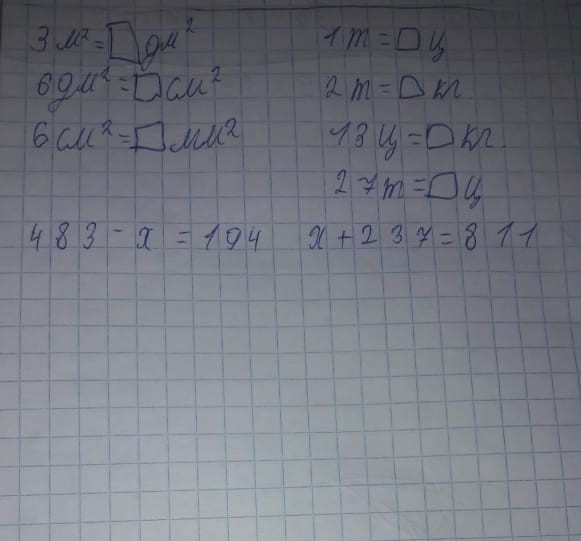 3 м² = □ дм² 1 т = □ ц
6 дм² = □ см² 2 т = □ кг
6 см² = □ мм² 13 ц = □ кг
27 т = □ ц
483 - х = 194 х + 237 = 811